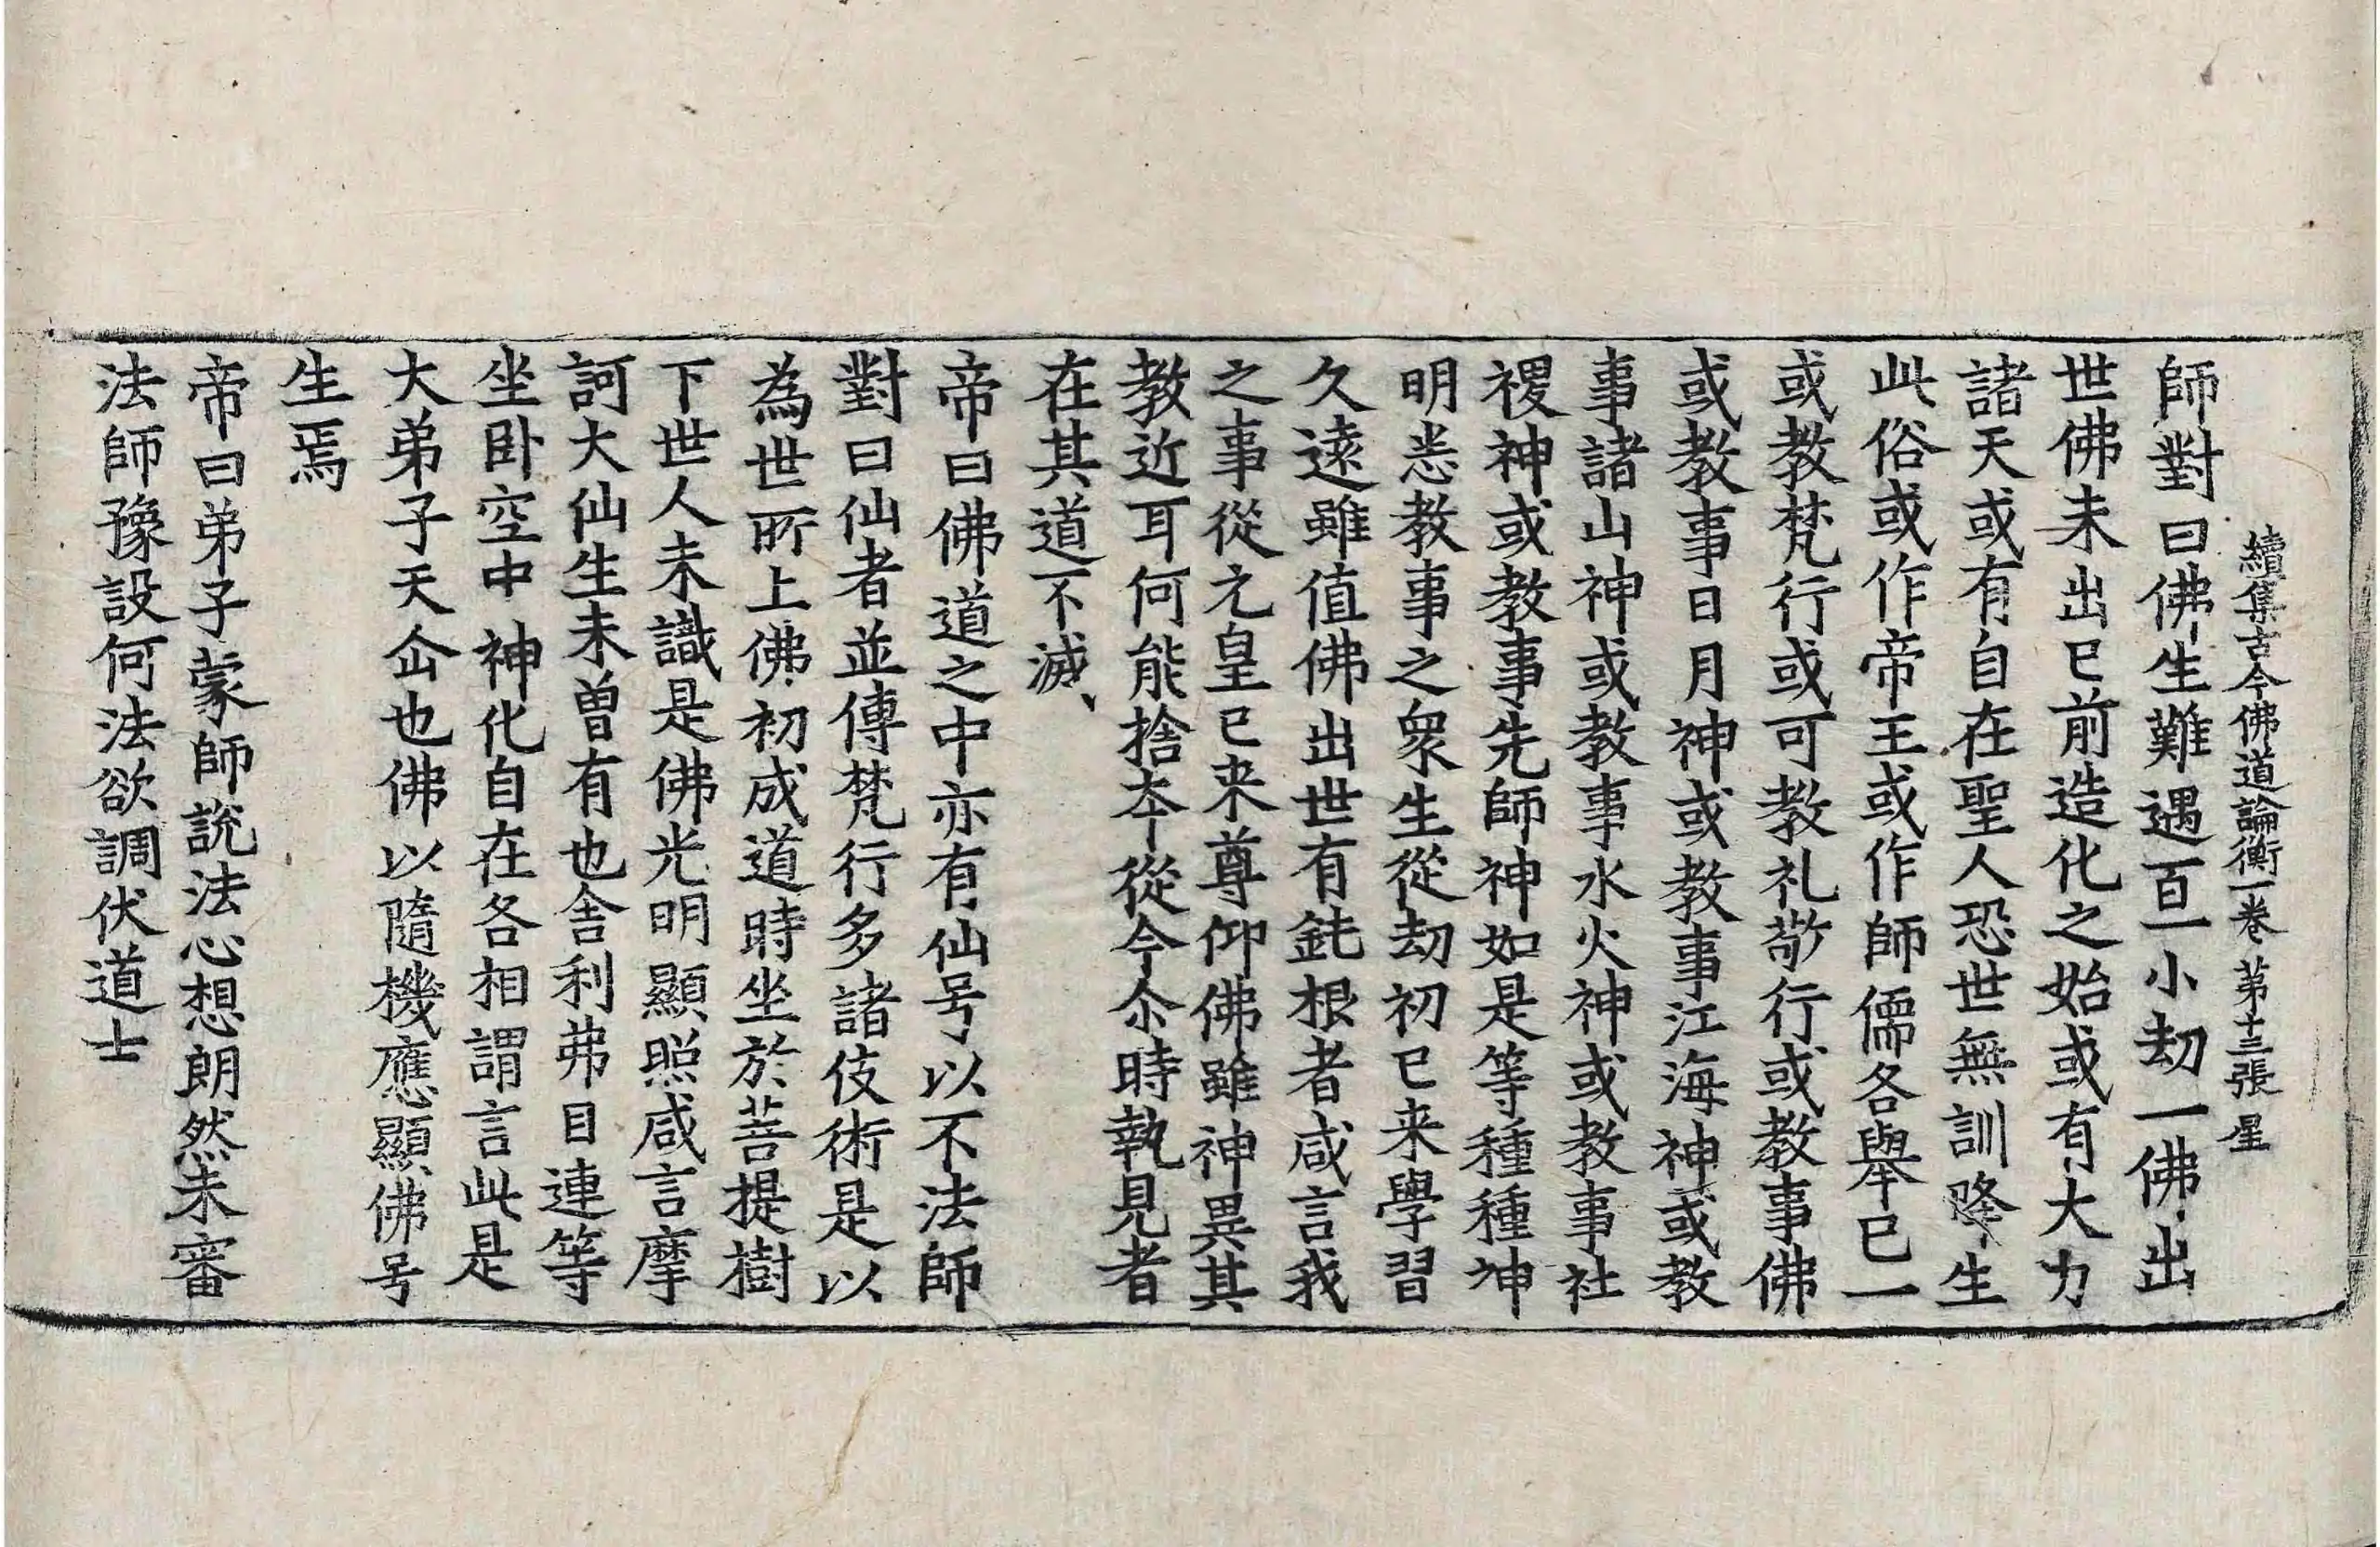 續集古今佛道論衡一卷 第十三張 星
師對曰佛生難遇百一小劫一佛出
世佛未出已前造化之始或有大力
諸天或有自在聖人恐世無訓降生
此俗或作帝王或作師儒各舉已一
或教梵行或可教礼敬行或教事佛
或教事日月神或教事江海神或教
事諸山神或教事水火神或教事社
稷神或教事先師神如是等種種神
明悉教事之衆生從劫初已来學習
久遠雖值佛出世有鈍根者咸言我
之事從元皇已来尊仰佛雖神異其
教近耳何能捨本從今尒時執見者
在其道不滅、
帝曰佛道之中亦有仙号以不法師
對曰仙者並傳梵行多諸伎術是以
為世所上佛初成道時坐於菩提樹
下世人未識是佛光明顯照咸言摩
訶大仙生未曾有也舍利弗目連等
坐卧空中神化自在各相謂言此是
大弟子天仚也佛以隨機應顯佛号
生焉
帝曰弟子蒙師說法心想朗然未審
法師豫設何法欲調伏道士